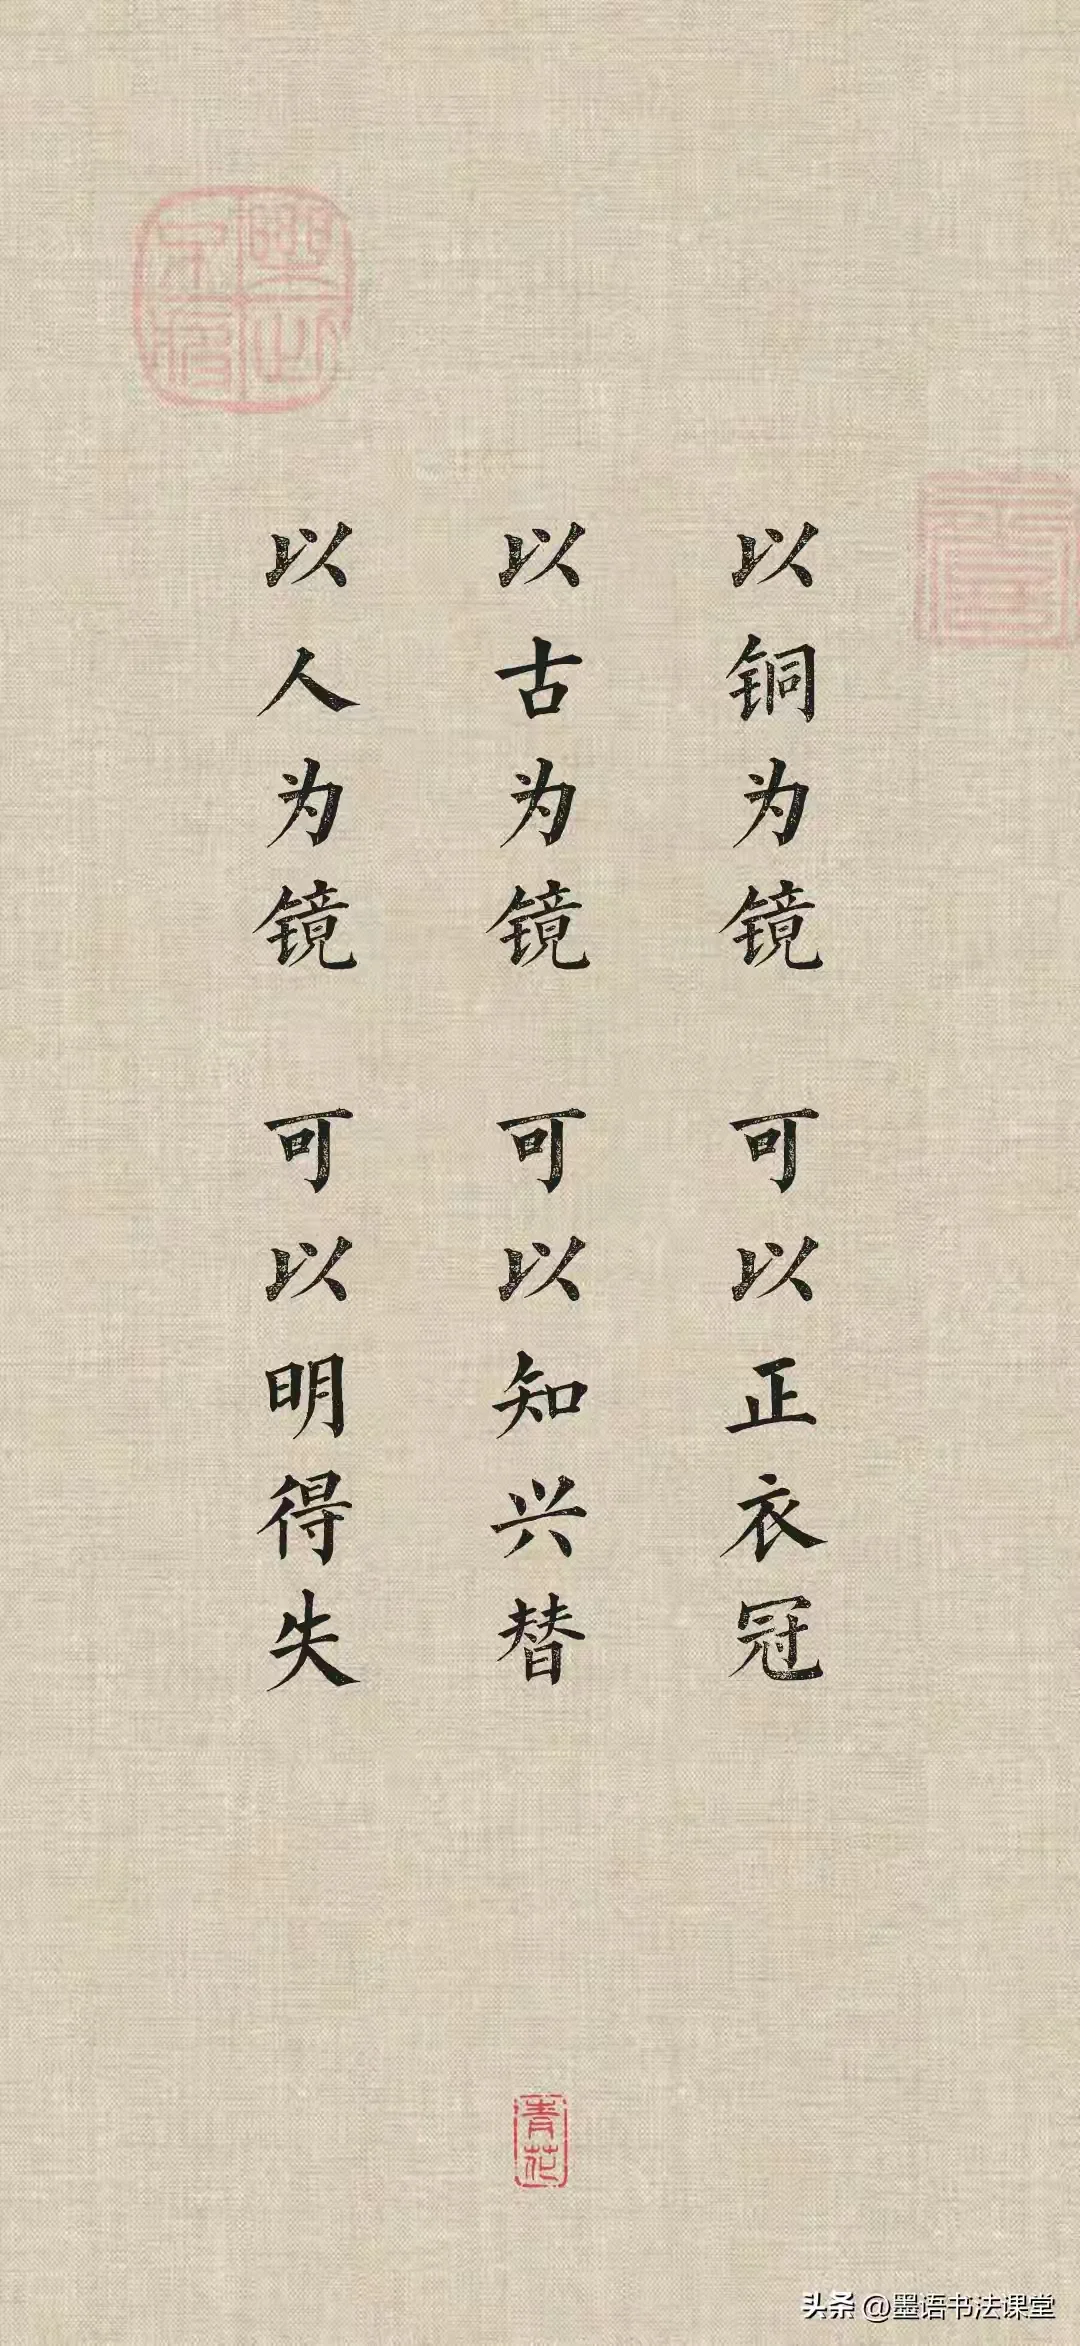 以铜为镜 可以正衣冠
以古为镜 可以知兴替
以人为镜 可以明得失
青花
头条 @墨语书法课堂